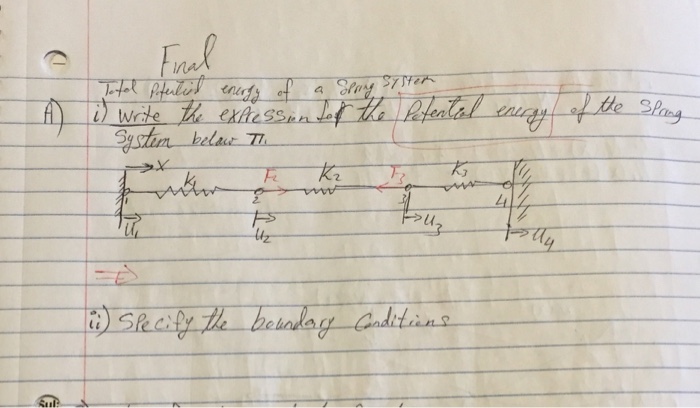 Final
Total Potential energy of a Spring System
A) i) Write the expression for the Potential energy of the Spring
System below π.
x
K1 F2 K2 F3 K3
1 2 3 4
U1 U2 U3 U4
ii) Specify the boundary Conditions
Sul: